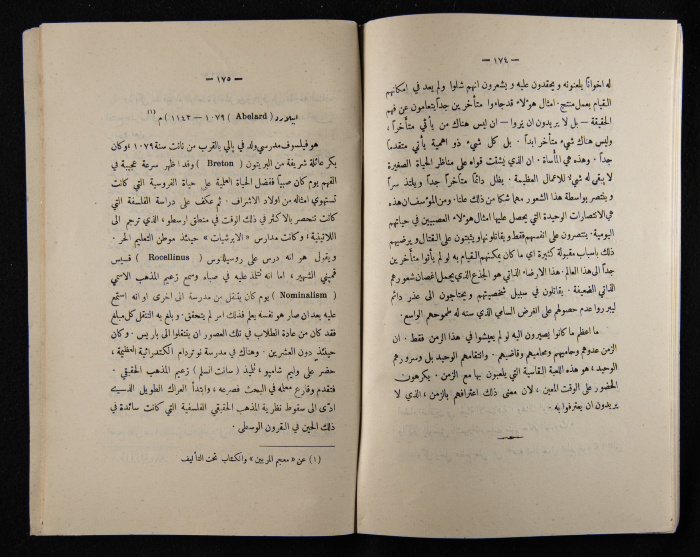 — ١٧٤ —
له اخواناً يلعنونه ويحقدون عليه ويشعرون انهم شلوا ولم يعد في امكانهم
القيام بعمل منتج. امثال هؤلاء قد جاءوا متأخرين جداً يتعامون عن فهم
الحقيقة — بل لا يريدون ان يروا — ان ليس هناك من يأتي متأخراً،
وليس هناك شيء متأخر ابداً. بل كل شيء ذو اهمية يأتي متقدماً
جداً. وهذه هي المأساة. ان الذي يشتت قواه على مناظر الحياة الصغيرة
لا يبقى له شيء للاعمال العظيمة. يظل دائماً متأخراً جداً ويلتذ سراً
وينتصر بواسطة هذا الشعور مهما شكا من ذلك علناً. ومن المؤسف ان هذه
هي الانتصارات الوحيدة التي يحصل عليها امثال هؤلاء العصبيين في حياتهم
اليومية. ينتصرون على انفسهم فقط ويقاتلونها ويثبتون على القتال ويرضيهم
ذلك باسباب معقولة كثيرة اي ما كان يمكنهم القيام به لو لم يأتوا متأخرين
جداً الى هذا العالم. هذا الارضاء الذاتي هو الجذع الذي يحمل اغصان شعورهم
الذاتي الضعيفة. يقاتلون في سبيل شخصيتهم ويحتاجون الى عذر دائم
ليبرروا عدم حصولهم على الغرض السامي الذي سنه له طموحهم الواسع.
ما اعظم ما كانوا يصيرون اليه لو لم يعيشوا في هذا الزمن فقط. ان
الزمن عدوهم وحاميهم ومحاميهم وقاضيهم. وانتقامهم الوحيد بل وسرورهم
الوحيد، هو هذه اللعبة القاسية التي يلعبون بها مع الزمن. يكرهون
الحضور على الوقت المعين، لان معنى ذلك اعترافهم بالزمن، الذي لا
يريدون ان يعترفوا به.
— ١٧٥ —
ابيلارد (Abelard) ١٠٧٩ — ١١٤٢ م (١)
هو فيلسوف مدرسي ولد في پالي بالقرب من نانت سنة ١٠٧٩، وكان
بكر عائلة شريفة من البريتون (Breton) وقد اظهر سرعة عجيبة في
الفهم يوم كان صبياً ففضل الحياة العلمية على حياة الفروسية التي كانت
تستهوي امثاله من اولاد الاشراف. ثم عكف على دراسة الفلسفة التي
كانت تنحصر بالاكثر في ذلك الوقت في منطق ارسطو، الذي ترجم الى
اللاتينية، وكانت مدارس «الابرشيات» حينئذ موطن التعليم الحر.
ويقول هو انه درس على روسيلانوس (Rocellinus) قسيس
قمپني الشهير، اما انه تتلمذ عليه في صباه وسمع زعيم المذهب الاسمي
(Nominalism) يوم كان يتنقل من مدرسة الى اخرى او انه استمع
عليه بعد ان صار هو نفسه يعلم فذلك امر لم يتحقق. وبلغ به التنقل كل مبلغ
فقد كان من عادة الطلاب في تلك العصور ان يتنقلوا الى باريس. وكان
حينئذ دون العشرين. وهناك في مدرسة نوتردام الكتدرائية العظيمة،
حضر على وليم شامپو، تلميذ (سانت انسلم) زعيم المذهب الحقيقي.
فتقدم وقارع معلمه في البحث فصرعه، وابتدأ العراك الطويل الذي
ادى الى سقوط نظرية المذهب الحقيقي الفلسفية التي كانت سائدة في
ذلك الحين في القرون الوسطى.
(١) عن «معجم المربين» والكتاب تحت التأليف